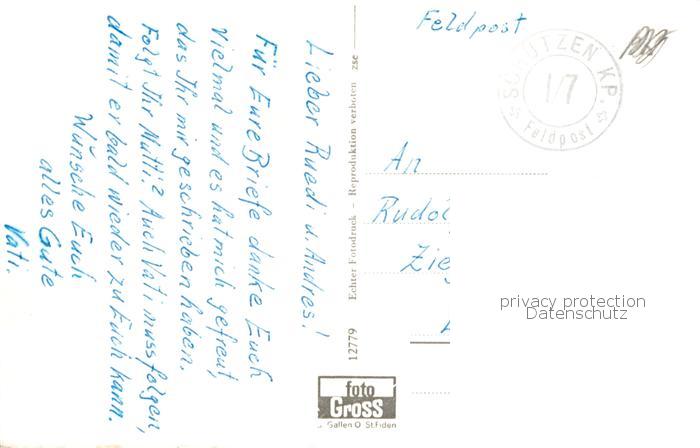 Lieber Ruedi u. Andres!
Für Eure Briefe danke Euch
Vielmal und es hat mich gefreut,
das Ihr mir geschrieben haben.
Folgt Ihr Mutti? Auch Vati muss folgen,
damit er bald wieder zu Euch kann.
Wünsche Euch
alles Gute
Vati.
Echter Fotodruck – Reproduktion verboten zse
12779
foto
Gross
Gallen O St.Fiden
Feldpost
SCHÜTZEN KP.
1/7
Feldpost
An
Rudol
Zie
privacy protection
Datenschutz